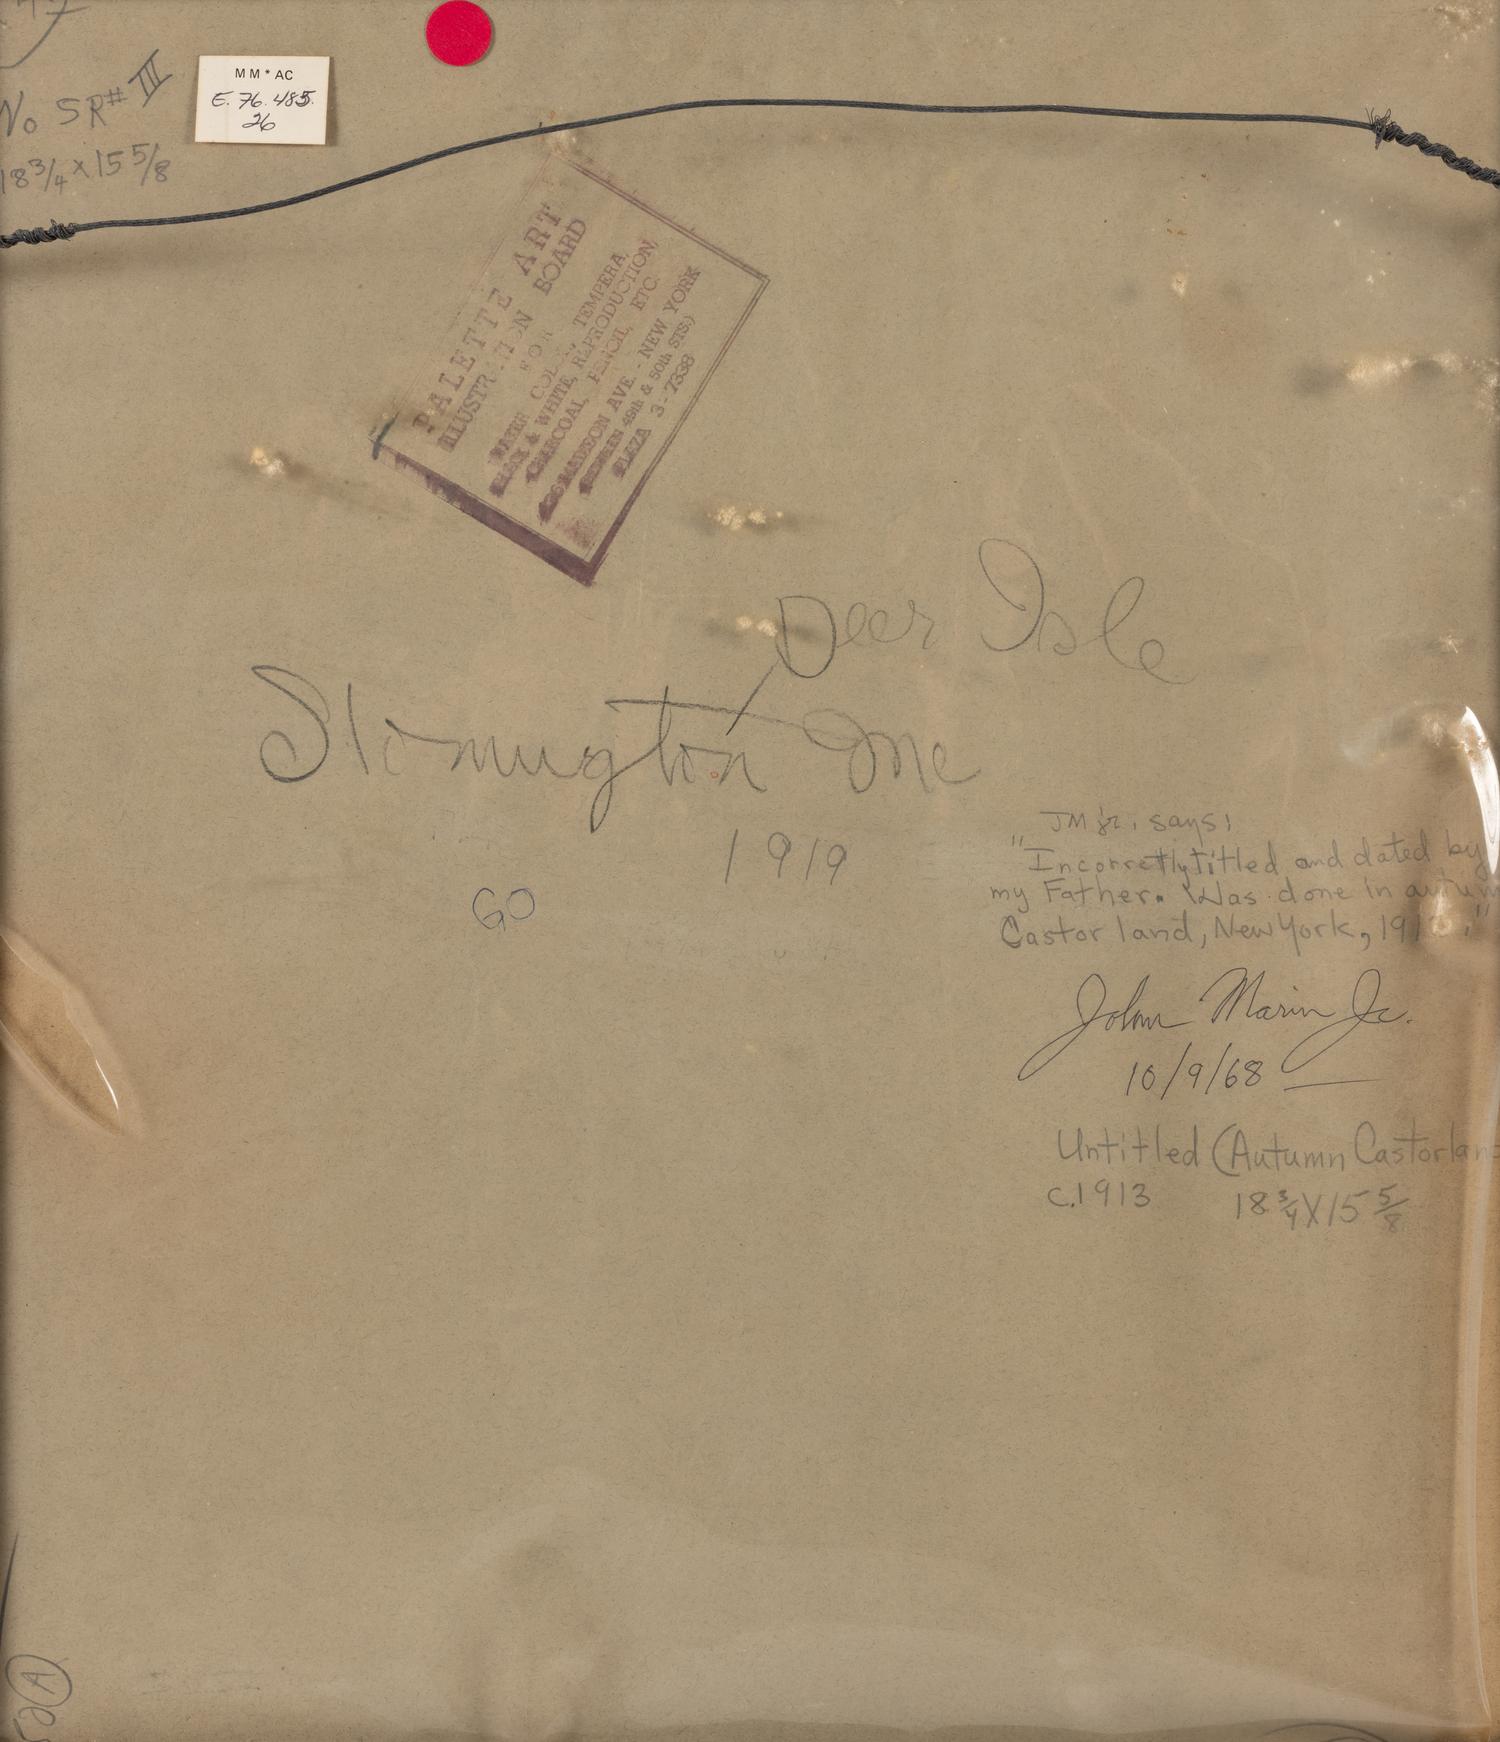 No SR# III
18 3/4 x 15 5/8
MM*AC
E.76.485.
26
PALETTE ART
ILLUSTRATION BOARD
FOR
WATER COLOR, TEMPERA,
BLACK & WHITE, REPRODUCTION,
CHARCOAL, PENCIL, ETC.
MADISON AVE. - NEW YORK
BETWEEN 49th & 50th STS.)
PLAZA 3-7338
Deer Isle
Stonington Me
1919
GO
JM jr. says:
"Incorrectly titled and dated by
my Father. Was done in autum
Castorland, New York, 191
John Marin Jr.
10/9/68
Untitled (Autumn Castorlan
c.1913 18 3/4 X 15 5/8
A